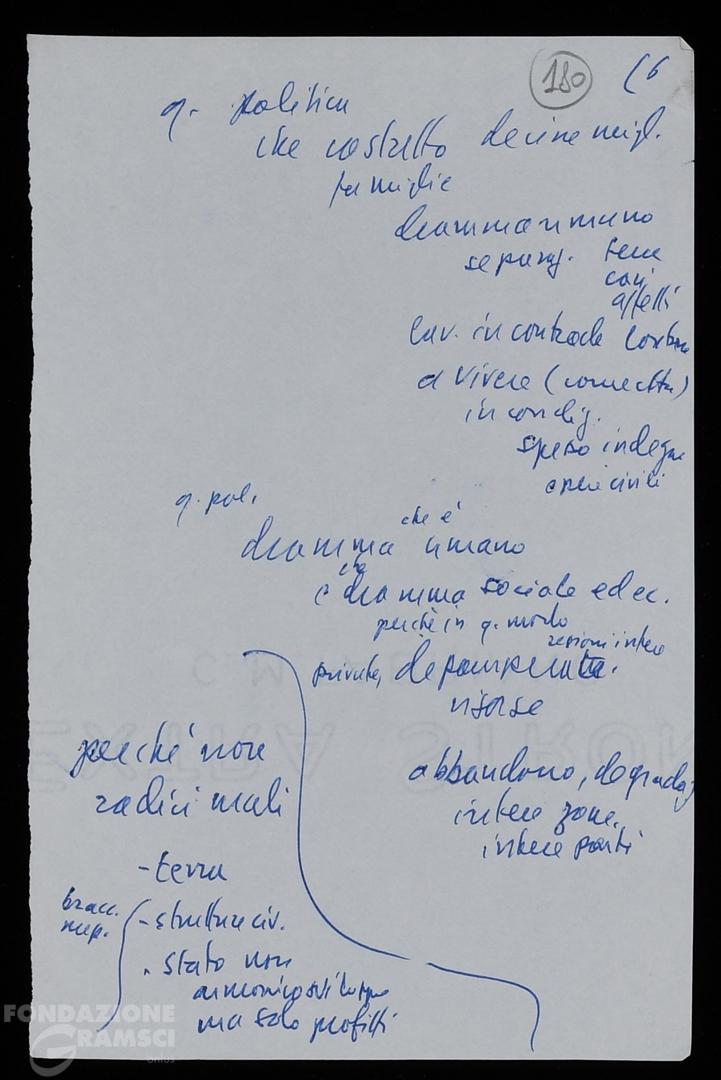 180
(6
q. politica
che costretto decine migl.
famiglie
dramma umano
separaz. terre
cari
affetti
lav. in contrade lontane
a vivere (connetta)
in condiz.
spesso indegne
civili
q. pol.
che è
dramma umano
è dramma sociale ed ec.
perché in q. modo
regioni intere
private, depauperate.
risorse
abbandono, degradaz.
intere zone,
intere parti
perché non
radici mali
- terra
bracc.
mep.
- strutture civ.
. Stato non
armonico sviluppo
ma solo profitti
EXTRA STRONG
FONDAZIONE
GRAMSCI
onlus